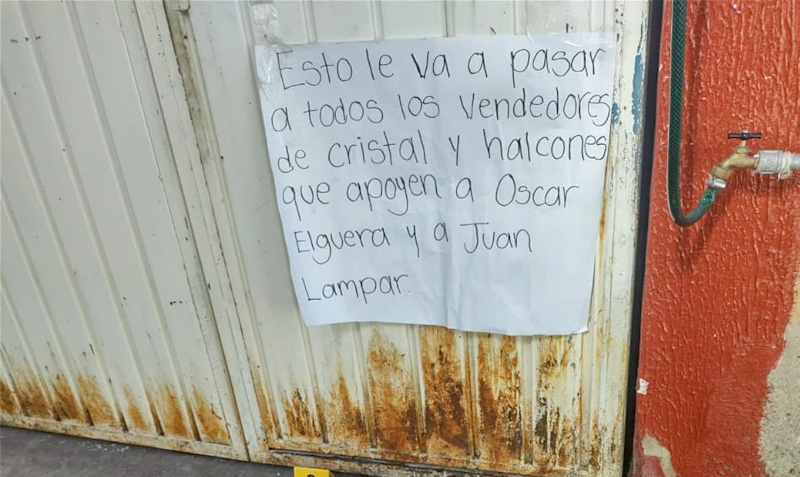 Esto le va a pasar
a todos los vendedores
de cristal y halcones
que apoyen a Oscar
Elguera y a Juan
Lampar.